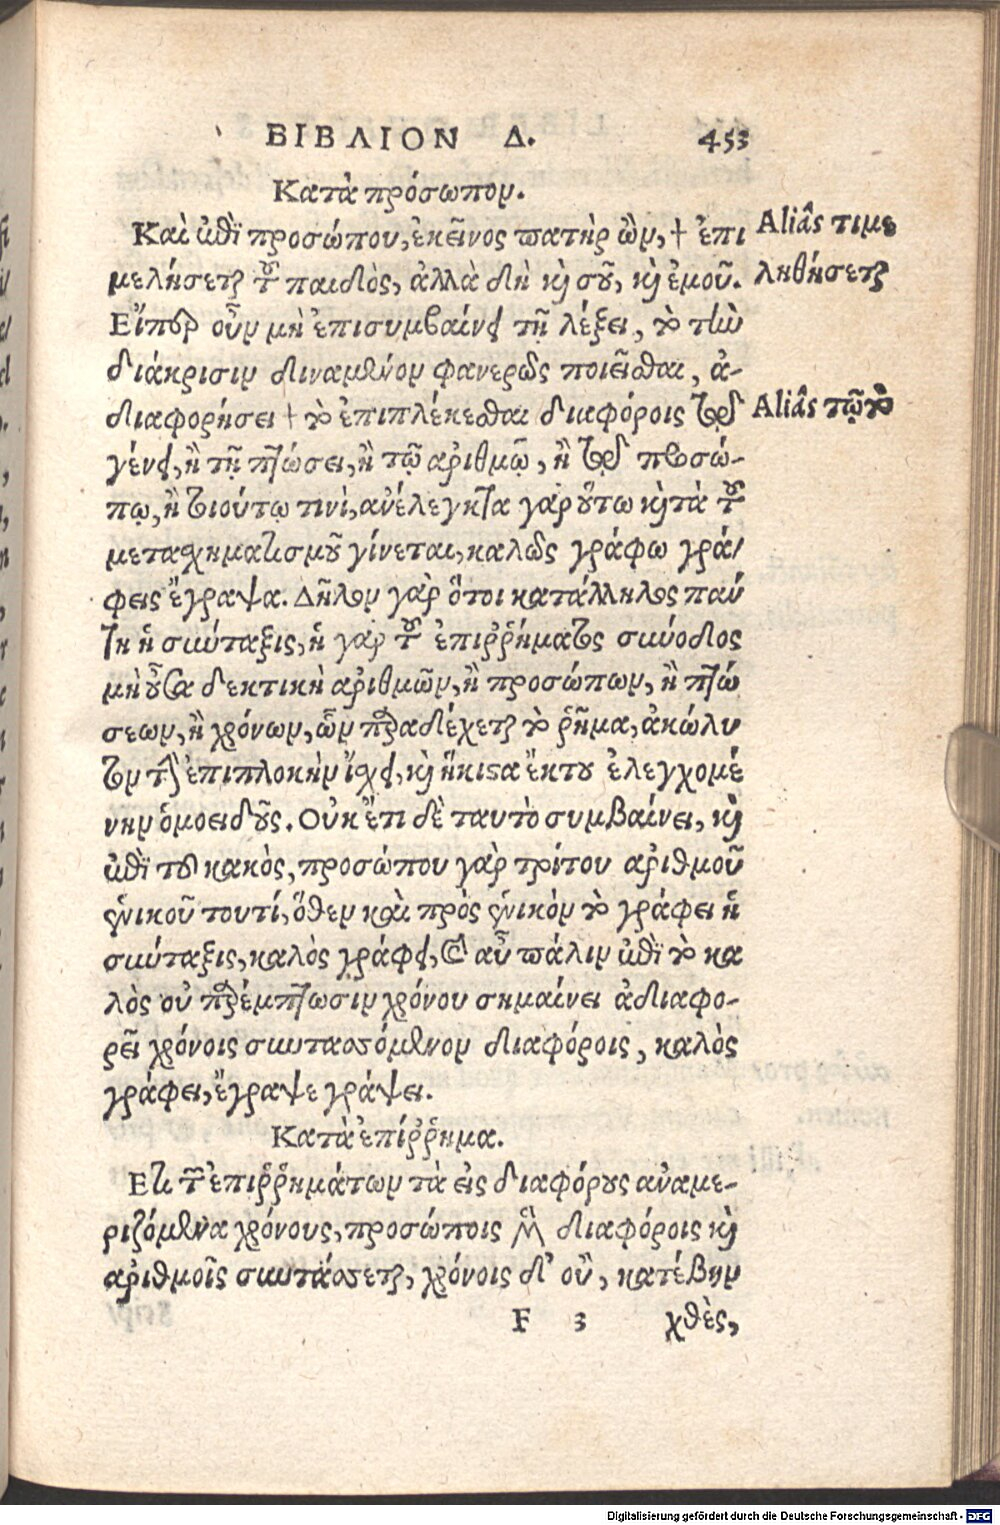 ΒΙΒΛΙΟΝ Δ. 453
Κατὰ πρόσωπον.
Καὶ ἐπὶ προσώπου, ἐκεῖνος πατὴρ ὢν, † ἐπι
Aliâs τιμε
μελήσεται τοῦ παιδὸς, ἀλλὰ δὴ καὶ σοῦ, καὶ ἐμοῦ.
ληθήσεται
Εἴπερ οὖν μὴ ἐπισυμβαίνῃ τῇ λέξει, τὸ τὴν
διάκρισιν δυναμένον φανερῶς ποιεῖσθαι, ἀ-
διαφορήσει † τὸ ἐπιπλέκεσθαι διαφόροις τῷ
Aliâs τῷ τὸ
γένει, ἢ τῇ πτώσει, ἢ τῷ ἀριθμῷ, ἢ τῷ προσώ-
πῳ, ἢ τοιούτῳ τινὶ, ἀνέλεγκτα γὰρ οὕτω καὶ τὰ τοῦ
μετασχηματισμοῦ γίνεται, καλῶς γράφω γρά/
φεις ἔγραψα. Δῆλον γὰρ ὅτι κατάλληλος παν
τὴ ἡ σύνταξις, ἡ γὰρ τοῦ ἐπιῤῥήματος σύνοδος
μὴ οὖσα δεκτικὴ ἀριθμῶν, ἢ προσώπων, ἢ πτώ
σεων, ἢ χρόνων, ὧν παραδέχεται τὸ ῥῆμα, ἀκώλυ
τον τὴν ἐπιπλοκὴν ἴσχει, καὶ ἥκιστα ἔκ του ἐλεγχομέ
νην ὁμοειδοῦς. Οὐκ ἔτι δὲ ταυτὸ συμβαίνει, καὶ
ἐπὶ τοῦ κακὸς, προσώπου γὰρ τρίτου ἀριθμοῦ
ἑνικοῦ τουτί, ὅθεν καὶ πρὸς ἑνικὸν τὸ γράφει ἡ
σύνταξις, καλὸς γράφει, καὶ αὖ πάλιν ἐπὶ τὸ κα
λὸς οὐ παρέμπτωσιν χρόνου σημαίνει ἀδιαφο-
ρεῖ χρόνοις συντασσόμενον διαφόροις, καλὸς
γράφει, ἔγραψε γράψει.
Κατὰ ἐπίῤῥημα.
Ἐκ τῶν ἐπιῤῥημάτων τὰ εἰς διαφόρους ἀναμε-
ριζόμενα χρόνους, προσώποις μὲν διαφόροις καὶ
ἀριθμοῖς συντάσσεται, χρόνοις δ' οὒ, κατέβην
F 3 χθὲς,
Digitalisierung gefördert durch die Deutsche Forschungsgemeinschaft - DFG